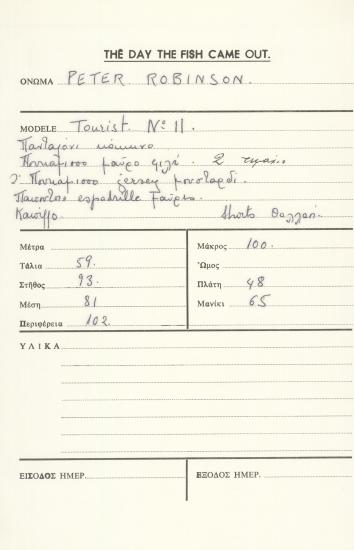 THE DAY THE FISH CAME OUT.
ΟΝΩΜΑ PETER ROBINSON.
MODELE Tourist. Nº 11.
Πανταλόνι κόκκινο
Πουκάμισο μαύρο φιλέ. 2
2º Πουκάμισο jersey μουσταρδί.
Παπούτσι espadrille μαύρο.
Καπέλλο. Shorts
Μέτρα
Τάλια 59.
Στῆθος 93.
Μέση 81
Περιφέρεια 102.
Μάκρος 100.
Ὦμος
Πλάτη 48
Μανίκι 65
ΥΛΙΚΑ
ΕΙΣΟΔΟΣ ΗΜΕΡ.
ΕΞΟΔΟΣ ΗΜΕΡ.